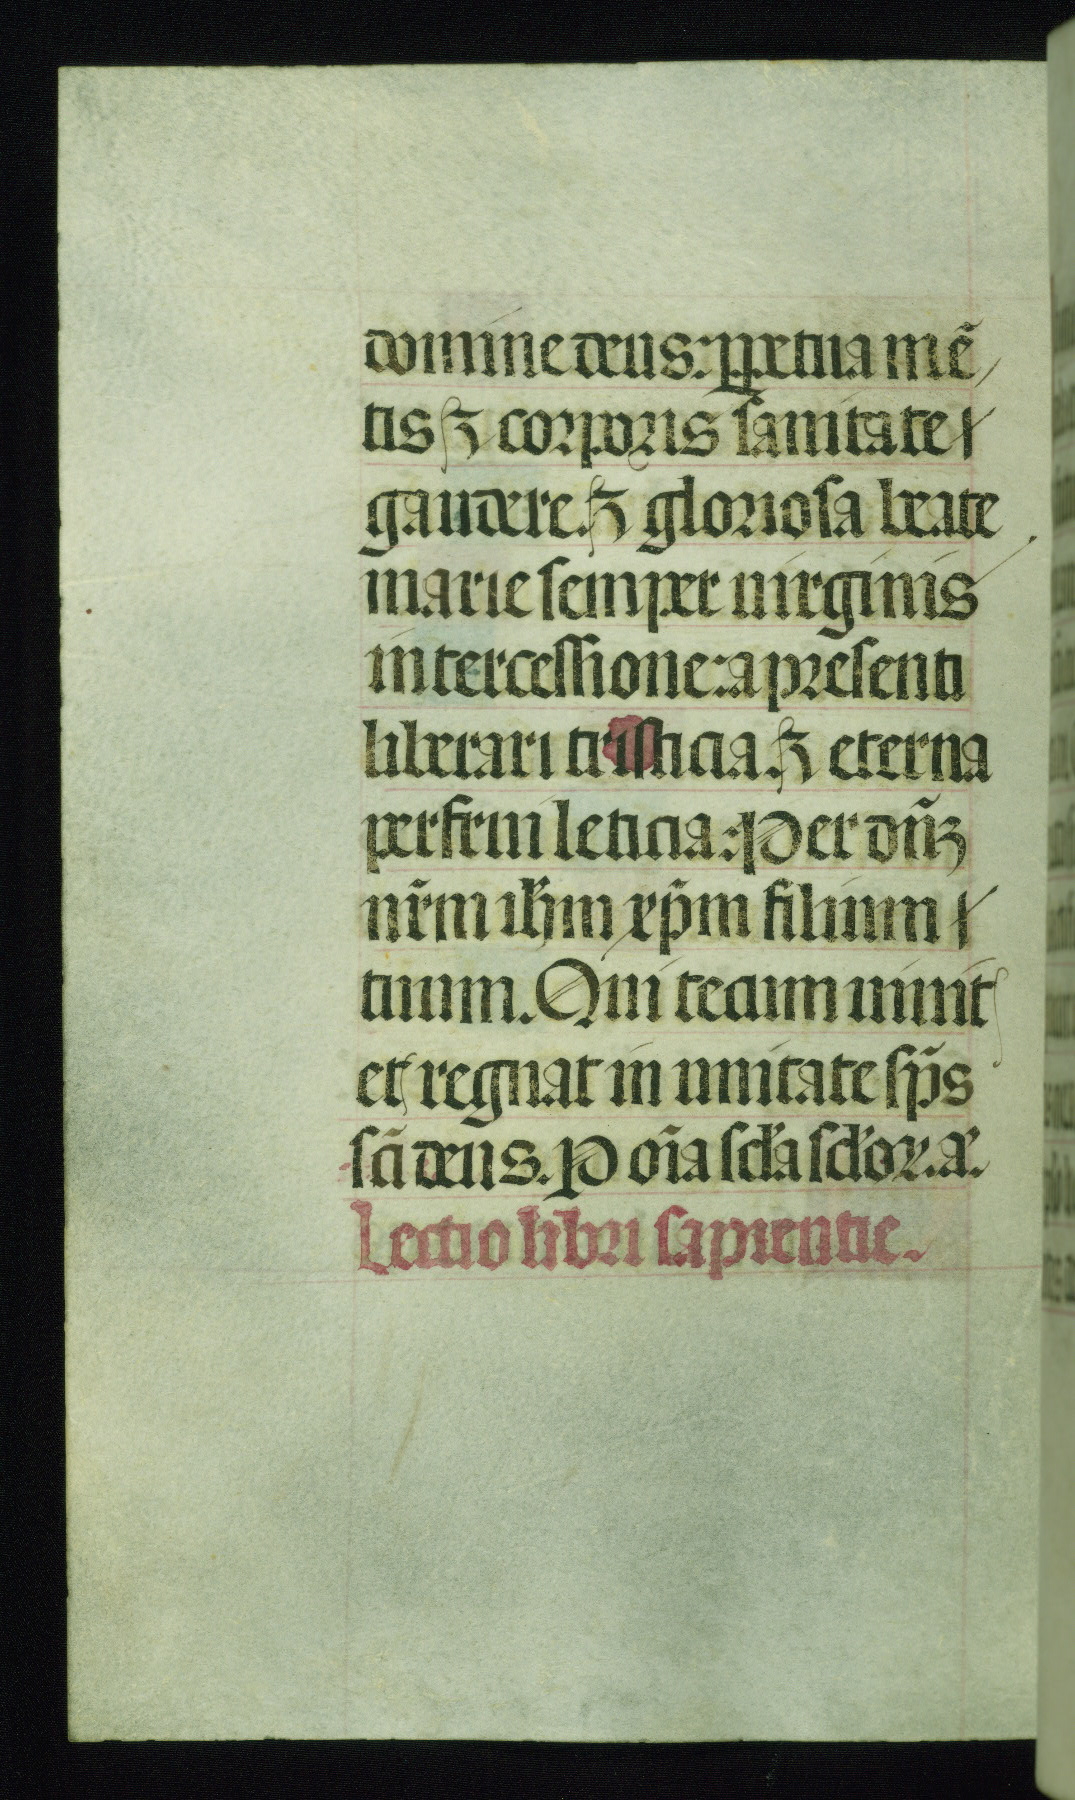 domine deus: ꝑpetua mẽ/
tis ⁊ corporis sanitate
gaudere. ⁊ gloriosa beate
marie semper uirginis
intercessione: a presenti
liberari tristicia. ⁊ eterna
perfrui leticia: Per dñꝫ
nr̃m ihm xp̃m filium
tuum. Qui tecum uiuit
et regnat in unitate sp̃s
sc̃i deus. P oĩa sc̃la sc̃loꝝ. a.
Lectio libri sapientie.